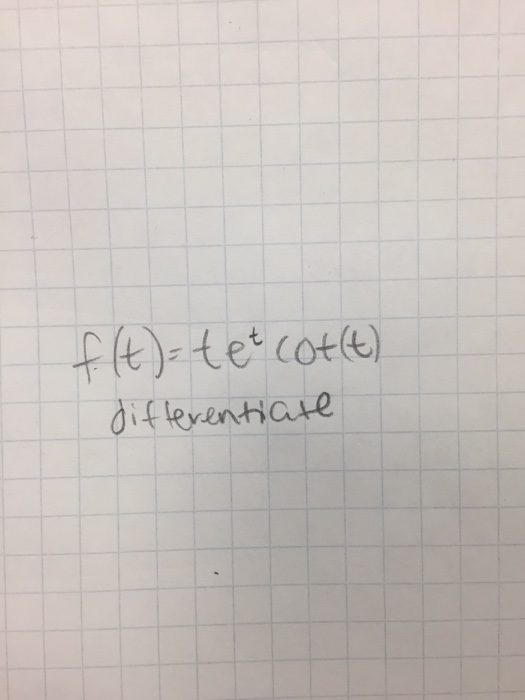 f(t)= te^t cot(t)
differentiate